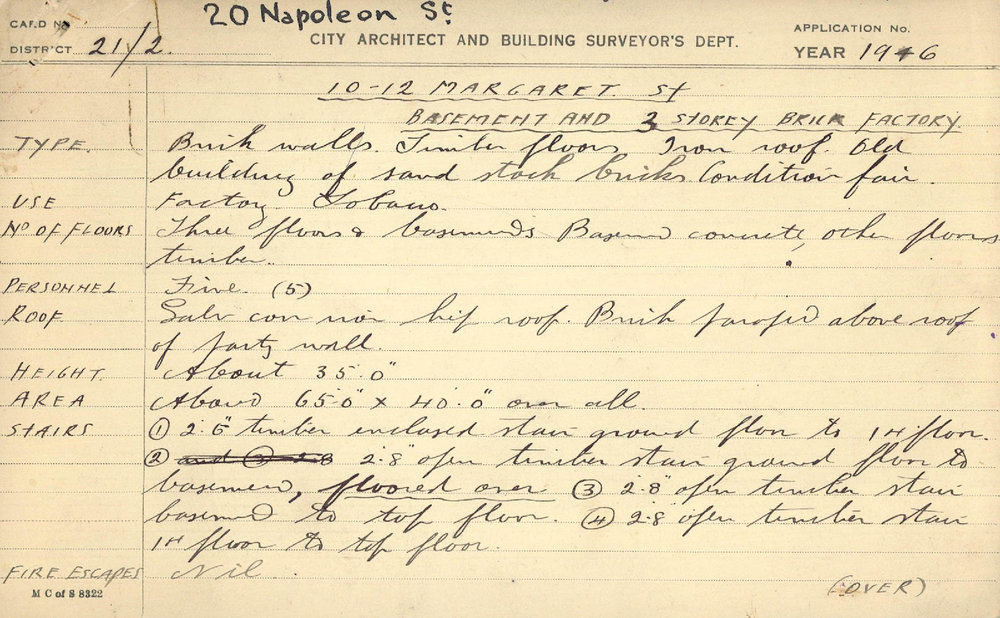 20 Napoleon St
CARD No
DISTRICT 21/2.
CITY ARCHITECT AND BUILDING SURVEYOR'S DEPT.
APPLICATION No.
YEAR 1946
10-12 MARGARET St
BASEMENT AND 3 STOREY BRICK FACTORY
TYPE. Brick walls. Timber floors Iron roof. Old
building of sand stock bricks Condition fair.
USE Factory. Tobacco.
No OF FLOORS Three floors & basements Basement concrete, other floors
timber.
PERSONNEL Five. (5)
ROOF. Galv corr iron hip roof. Brick parapet above roof
of party wall.
HEIGHT. About 35.0"
AREA About 65.0" x 40.0" over all.
STAIRS ① 2.6" timber enclosed stair ground floor to 1st floor.
② and ③ 2.8 2.8" open timber stair ground floor to
basement, floored over ③ 2.8" open timber stair
basement to top floor. ④ 2.8" open timber stair
1st floor to top floor.
FIRE ESCAPES Nil.
M C of S 8322
(OVER)